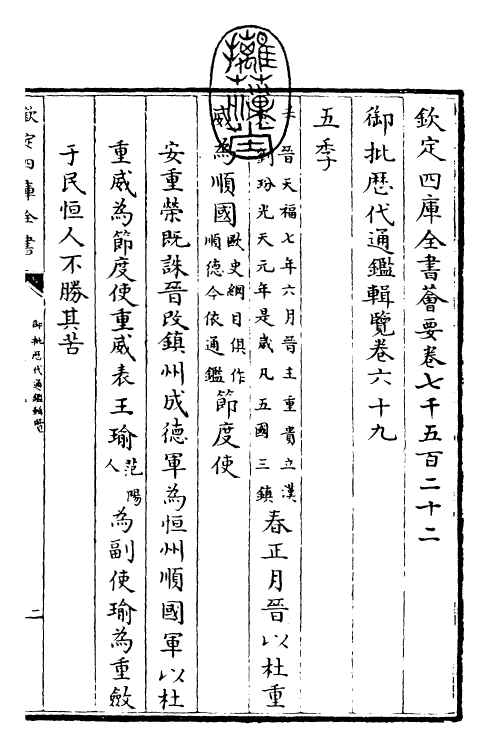 欽定四庫全書薈要卷七千五百二十二
御批歴代通鑑輯覽卷六十九
五季
晉天福七年六月晉主重貴立漢
劉玢光天元年是歲凡五國三鎮
春正月晉以杜重
威為順國
歐史綱目俱作
順德今依通鑑
節度使
安重榮既誅晉改鎮州成德軍為恒州順國軍以杜
重威為節度使重威表王瑜
范陽
人
為副使瑜為重斂
于民恒人不勝其苦
欽定四庫全書
御批歴代通鑑輯覽